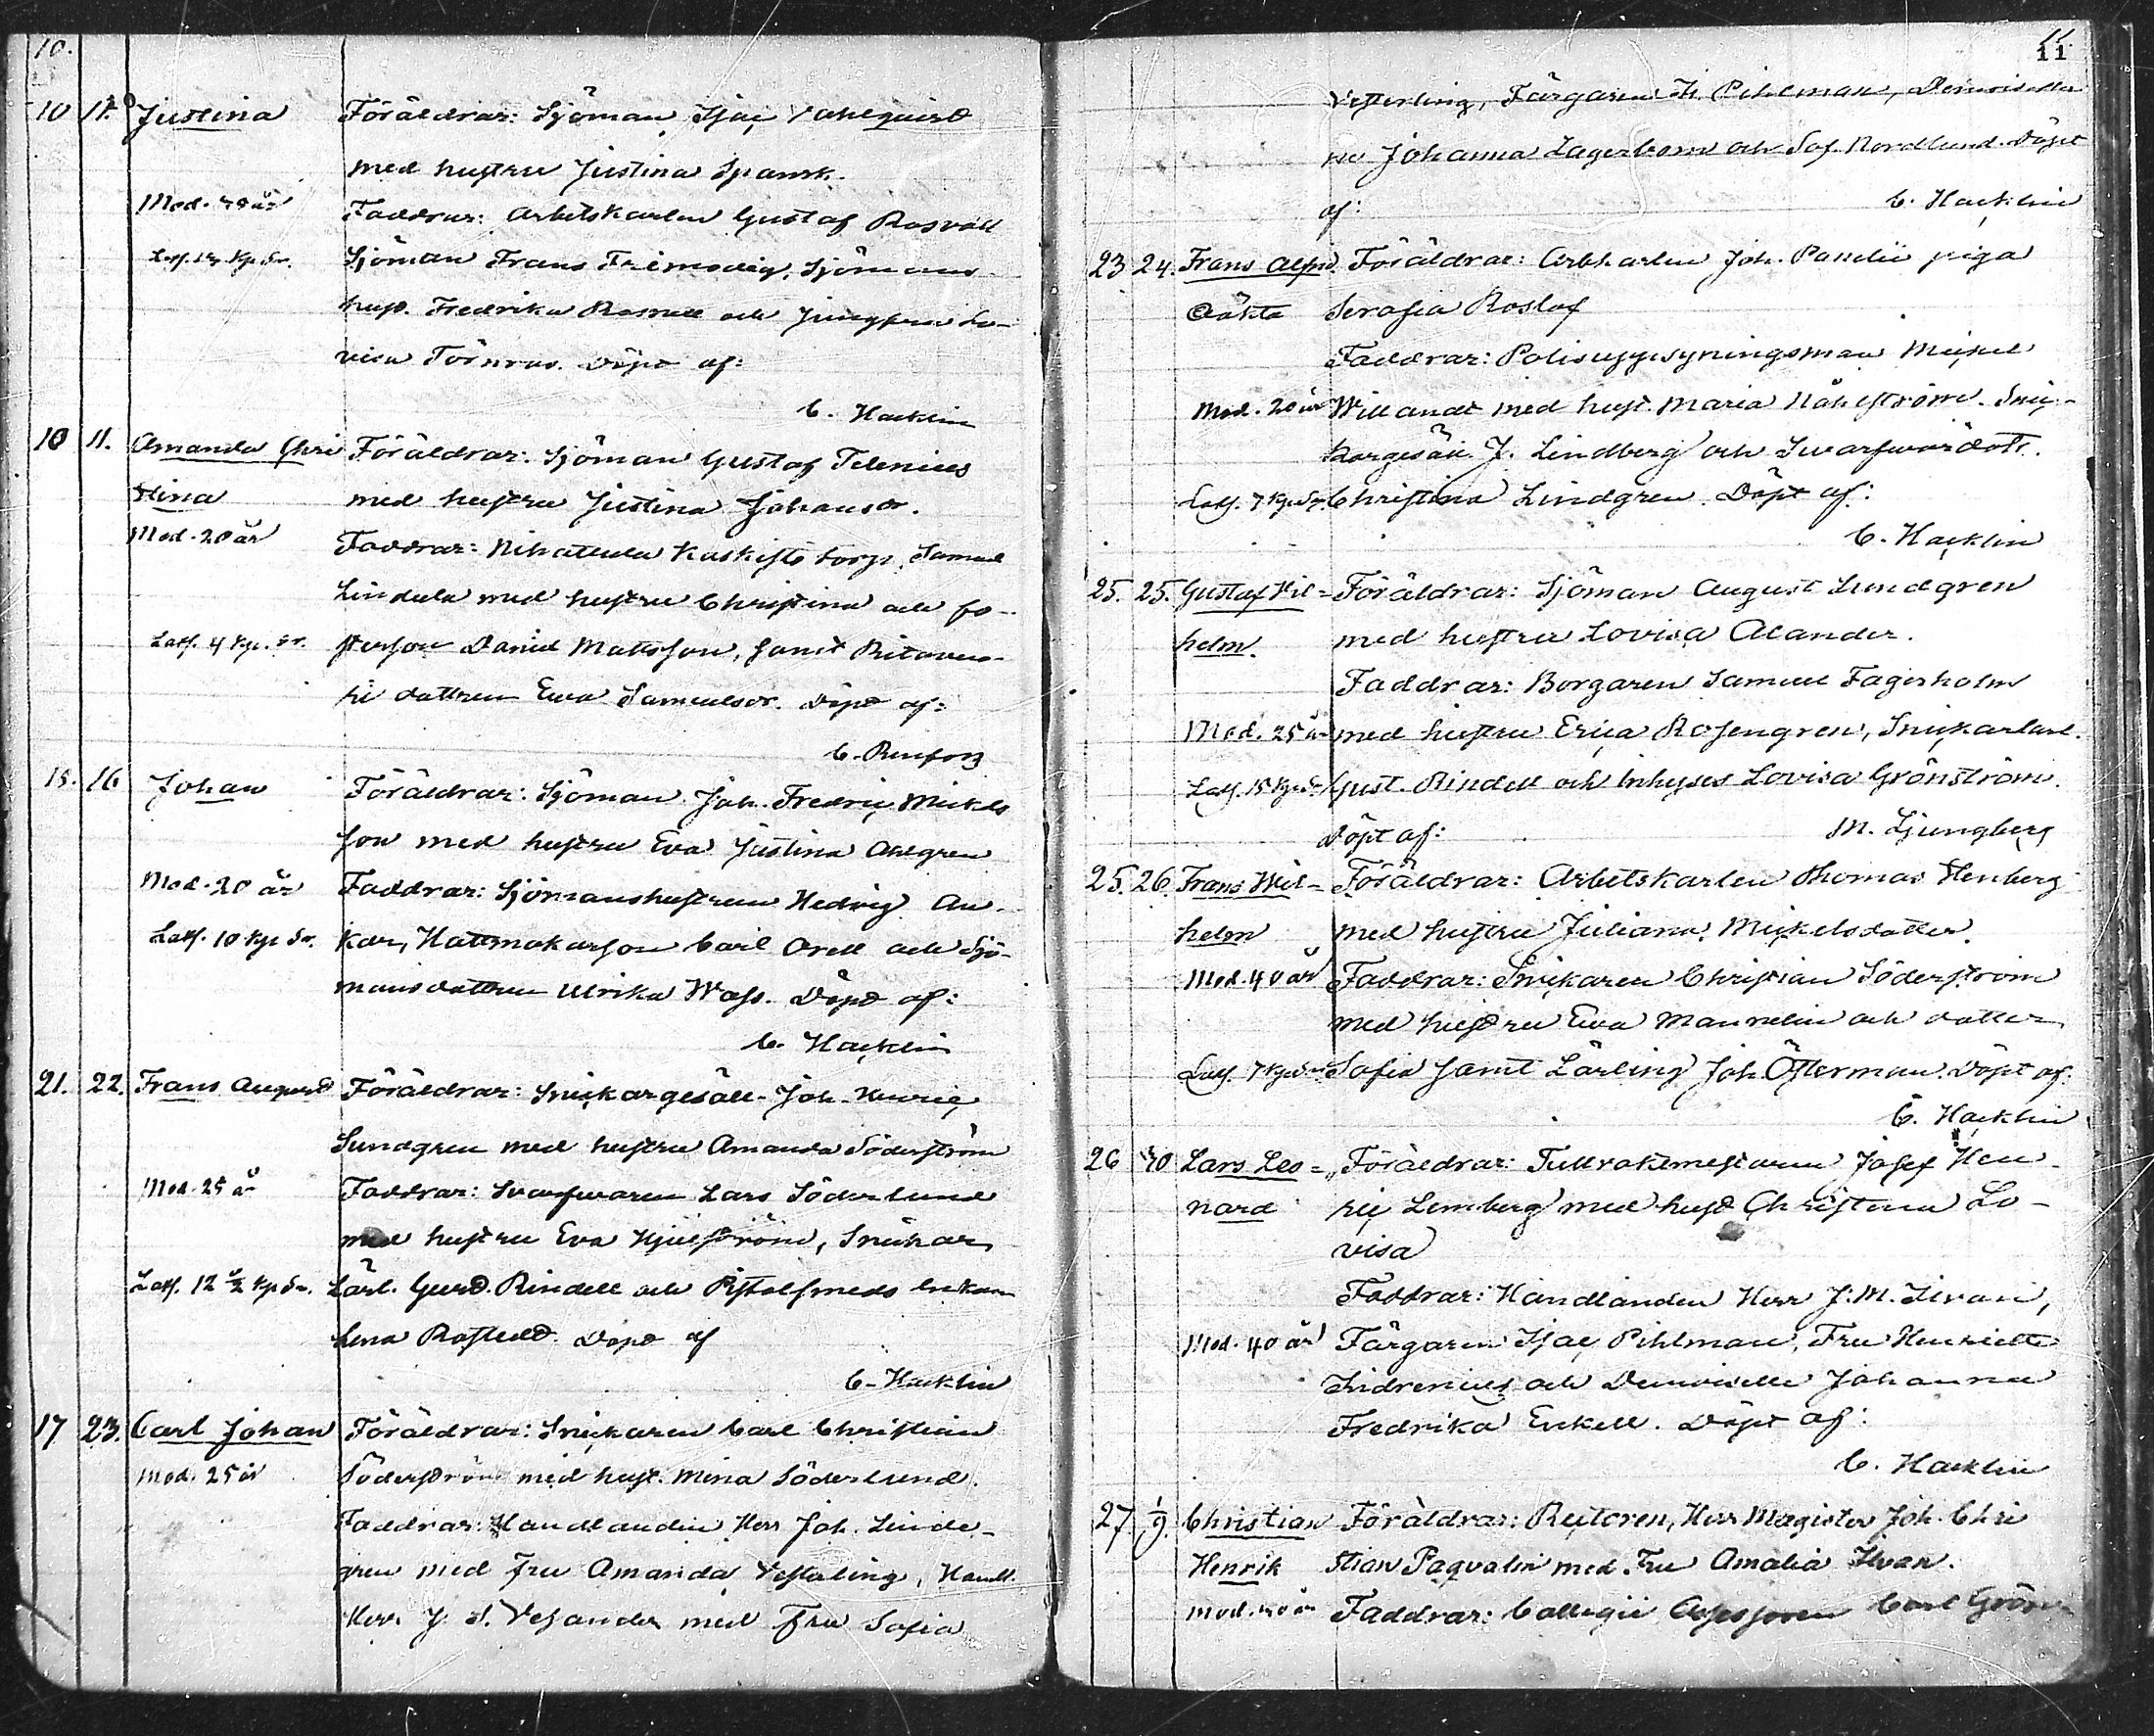 10.
10 11. Justina Föräldrar: Sjöman Isac Vahlquist
med hustru Justina Spansk.
Mod. år Faddrar: Arbetskarlen Gustaf Rosvall
Sjöman Frans Frimodig, Sjömans
hust. Fredrika Rosvall och Jungfrun Lo-
visa Törnros. Döpt af:
C. Hacklin
10 11. Amanda Chri Föräldrar: Sjöman Gustaf Telenius
stina med hustru Justina Johansdr.
Mod. 20 år Faddrar: Nihattula Kaskisto torp. Samuel
Lindula med hustru Christina och fo-
Latf. 4 kp. Sr. sterson David Mattsson, samt Ritaves-
si dottren Eva Samuelsdr. Döpt af:
C. Renfors
15. 16 Johan Föräldrar: Sjöman Joh. Fredric Mickels
son med hustru Eva Justina Ahlgren
Mod. 20 år Faddrar: Sjömanshustrun Hedvig An-
Latf. 10 kp. Sr. kar, Hattmakarson Carl Orell och Sjö-
mansdottren Ulrika Wass. Döpt af:
C. Hacklin
21. 22. Frans August Föräldrar: Snickargesäll Joh. Henric
Sundgren med hustru Amanda Söderström
Mod. 25 år Faddrar: Svarfvaren Lars Söderlund
med hustru Eva Hjulström, Snickar
Latf. 12 1/2 kp. Sr. Lärl. Gust. Rindell och Pistolsmeds enkan
Lena Rostedt. Döpt af
C. Hacklin
17 23. Carl Johan Föräldrar: Snickaren Carl Christian
Mod. 25 år Söderström med hust. Mina Söderlund.
Faddrar: Handlanden Herr Joh. Linde-
gren med Fru Amanda Vesterling, Handl.
Herr J. S. Vesander med Fru Sofia
11
Vesterling, Färgaren Is. Pihlman, Demoiseller
ne Johanna Lagerbom och Sof. Nordlund. Döpt
af: C. Hacklin
23 24. Frans Alfrd. Föräldrar: Arbkarlen Joh. Pandii piga
Oäkta Serafia Roslöf
Faddrar: Polisuppsyningsman Mickel
Mod. 20 år Willandt med hust. Maria Nåhlström. Snic-
kargesäll J. Lindberg och Svarfvardott.
Latf. 7 kp. Sr. Christina Lindgren. Döpt af:
C. Hacklin
25. 25. Gustaf Vil= Föräldrar: Sjöman August Lundgren
helm. med hustru Lovisa Alander.
Faddrar: Borgaren Samuel Fagerholm
Mod. 25 år med hustru Erica Rosengren, Snickarlärl.
Latf. 15 kp. Sr. Gust. Rindell och Inhyses Lovisa Grönström.
Döpt af: M. Ljungberg
25. 26 Frans Wil= Föräldrar: Arbetskarlen Thomas Stenberg
helm med hustru Juliana Mickelsdotter.
Mod. 40 år Faddrar: Snickaren Christian Söderström
med hustru Eva Mannelin och dotter
Latf. 7 kp. Sr. Sofia samt Lärling Joh. Österman. Döpt af:
C. Hacklin
26 30 Lars Leo= Föräldrar: Tullvaktmestaren Josef Hen
nard ric Lemberg med hust Christina Lo-
visa
Faddrar: Handlanden Herr J. M. Tivan,
Mod. 40 år Färgaren Isac Pihlman, Fru Henriette
Indrenius och Demoiselle Johanna
Fredrika Enkell. Döpt af:
C. Hacklin
27 1/9. Christian Föräldrar: Rectoren, Herr Magister Joh. Chri
Henrik stian Paqvalin med Fru Amalia Ilvan.
Mod. år Faddrar: Collegii Assessoren Carl Grön-